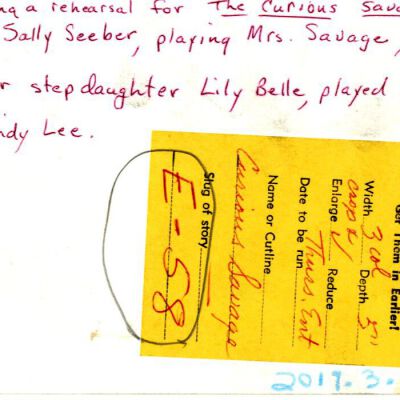 ng a rehearsal for The Curious Sava
Sally Seeber, playing Mrs. Savage,
r stepdaughter Lily Belle, played
ndy Lee.
Get Them in Earlier!
Width 3 col Depth 5"
crop ✓
Enlarge Reduce
Date to be run Thurs. Ent
Name or Cutline
Curious Savage
Slug of story
E-58
2017.3.